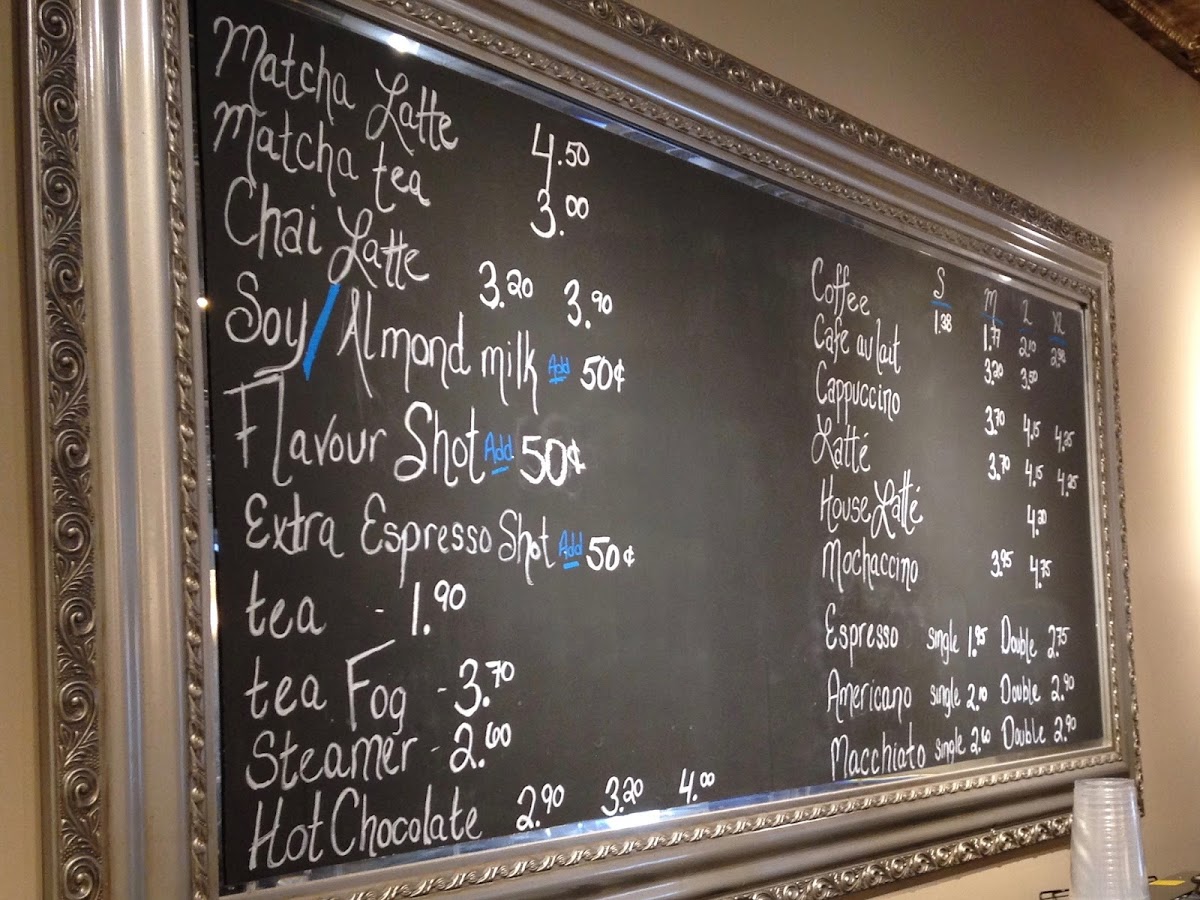 Matcha Latte 4.50
Matcha tea 3.00
Chai Latte 3.20 3.90
Soy/Almond milk Add 50¢
Flavour Shot Add 50¢
Extra Espresso Shot Add 50¢
tea - 1.90
tea Fog - 3.70
Steamer - 2.60
Hot Chocolate 2.90 3.20 4.00
S M L XL
Coffee 1.38 1.77 2.10
Cafe au lait 3.20 3.50
Cappuccino 3.70 4.15 4.25
Latté 3.70 4.15 4.25
House Latté
Mochaccino 3.95 4.75
Espresso single 1.95 Double 2.75
Americano single 2.10 Double 2.90
Macchiato single 2.60 Double 2.90